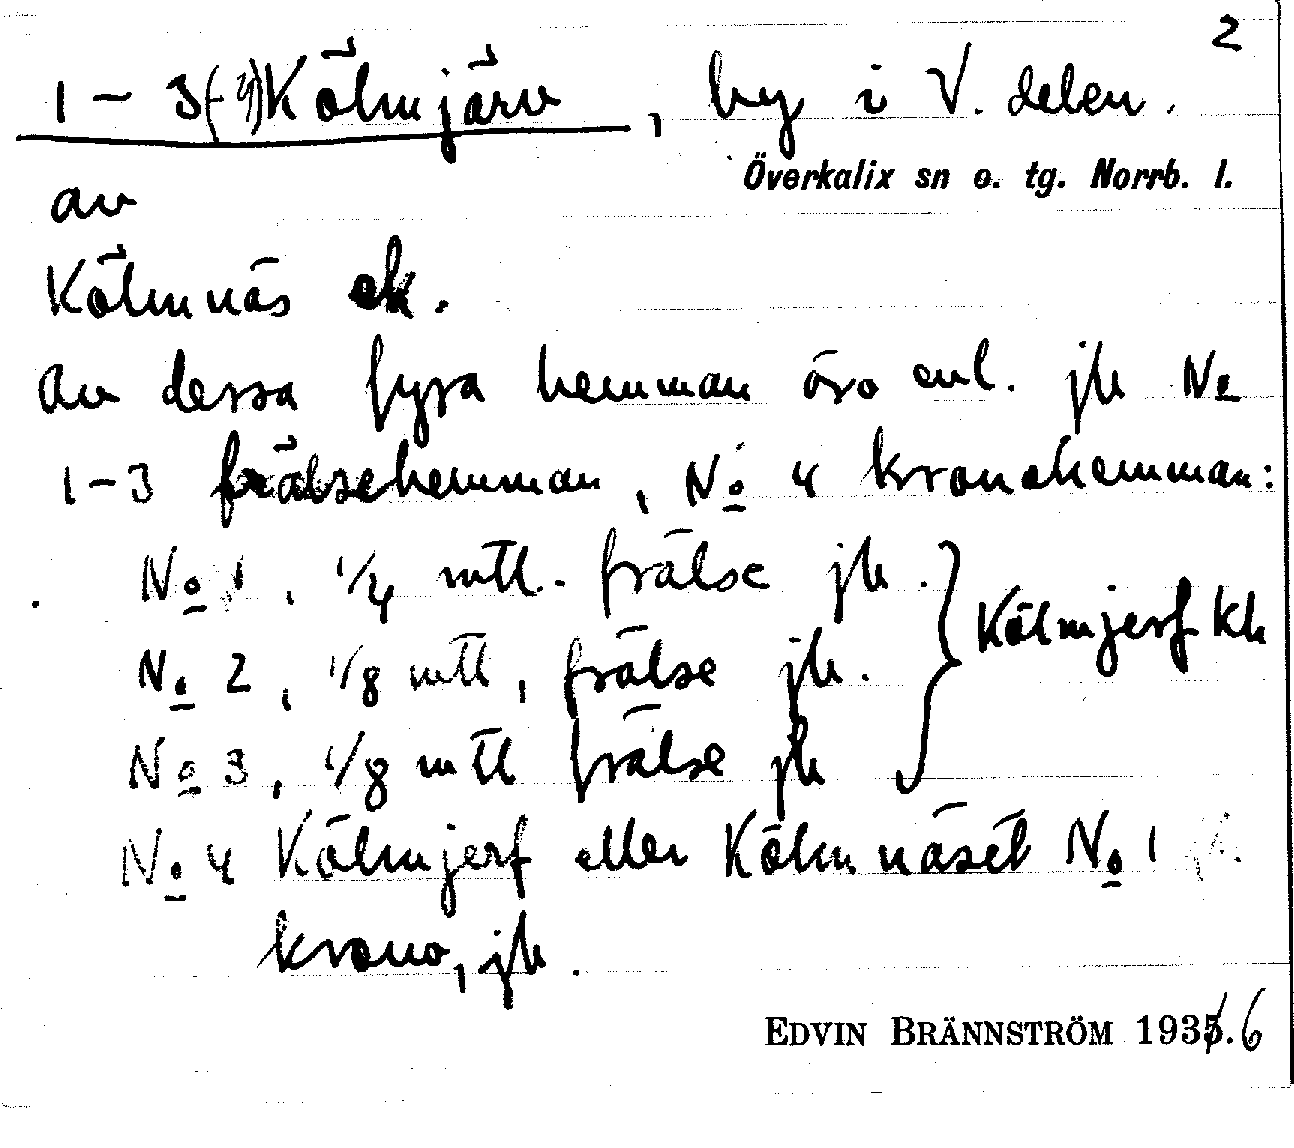 2
1 – 3(-4) Kölmjärv, by i V. delen.
Överkalix sn o. tg. Norrb. l.
av
Kölmnäs ek.
Av dessa fyra hemman äro enl. jb No
1–3 frälsehemman, No 4 kronohemman:
No 1, 1/4 mtl. frälse jb.
No 2, 1/8 mtl, frälse jb. } Kölmjerf kb
No 3, 1/8 mtl frälse jb
No 4 Kölmjerf eller Kölmnäset No 1
krono, jb.
EDVIN BRÄNNSTRÖM 193.6